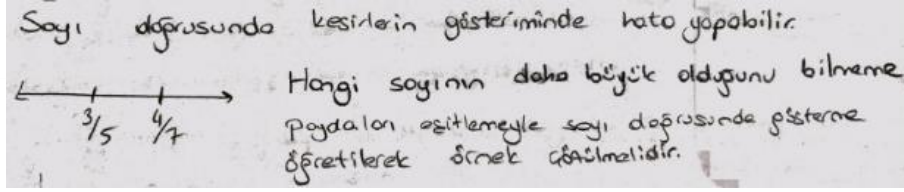 Sayı doğrusunda kesirlerin gösteriminde hata yapabilir.
3/5 4/7
Hangi sayının daha büyük olduğunu bilmeme
paydaları eşitlemeyle sayı doğrusunda gösterme
öğretilerek örnek çözülmelidir.